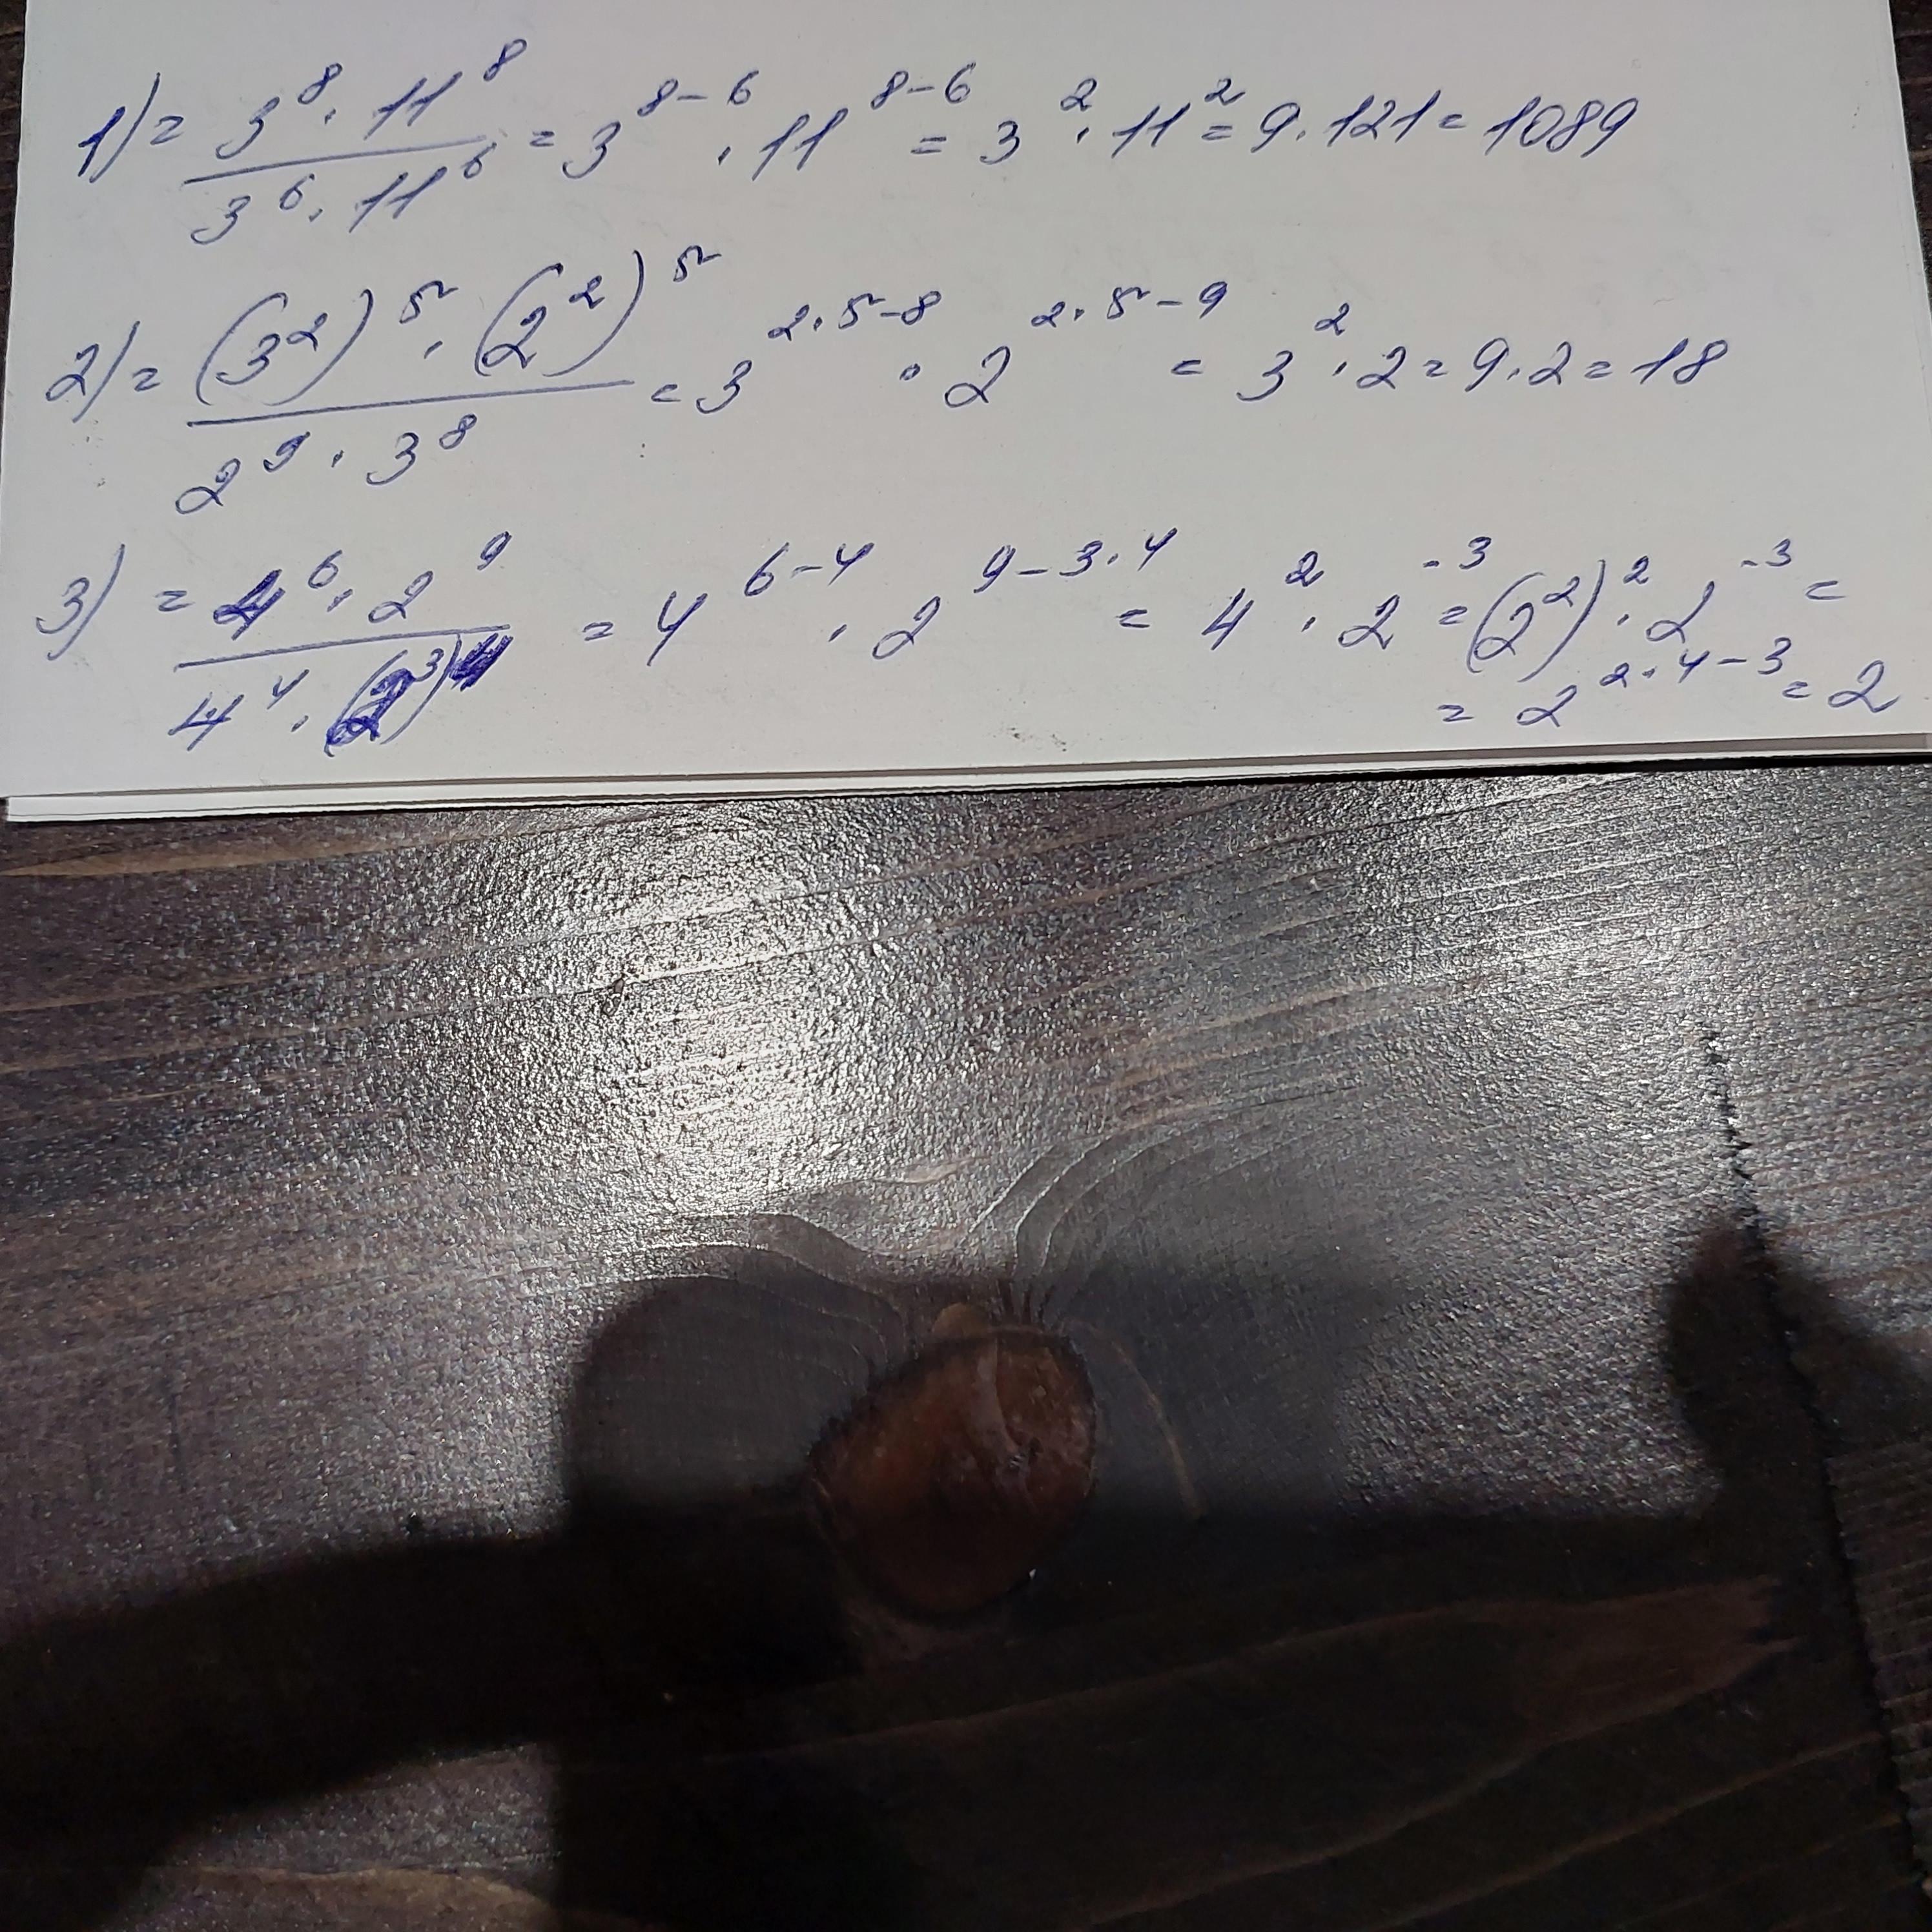 1) = 3⁸·11⁸ / 3⁶·11⁶ = 3⁸⁻⁶·11⁸⁻⁶ = 3²·11² = 9·121 = 1089
2) = (3²)⁵·(2²)⁵ / 2⁹·3⁸ = 3²·⁵⁻⁸·2²·⁵⁻⁹ = 3²·2 = 9·2 = 18
3) = 4⁶·2⁹ / 4⁴·(2³)⁴ = 4⁶⁻⁴·2⁹⁻³·⁴ = 4²·2⁻³ = (2²)²·2⁻³ =
= 2²·⁴⁻³ = 2